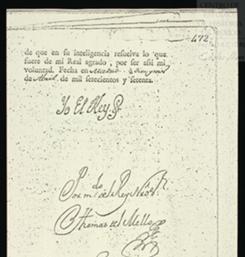 472
de que en su inteligencia resuelva lo que
fuere de mi Real agrado, por ser asi mi
voluntad. Fecha en Madrid
de Abril de mil setecientos y setenta.
Yo El Rey
Por mdo del Rey Nro Sr
Thomas del Mello